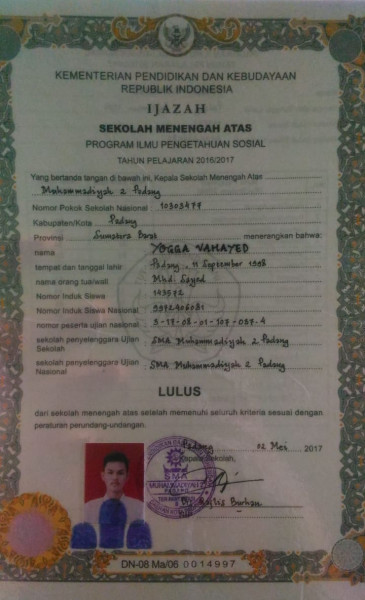 KEMENTERIAN PENDIDIKAN DAN KEBUDAYAAN
REPUBLIK INDONESIA
IJAZAH
SEKOLAH MENENGAH ATAS
PROGRAM ILMU PENGETAHUAN SOSIAL
TAHUN PELAJARAN 2016/2017
Yang bertanda tangan di bawah ini, Kepala Sekolah Menengah Atas
Muhammadiyah 2 Padang
Nomor Pokok Sekolah Nasional : 10303477
Kabupaten/Kota Padang
Provinsi Sumatera Barat menerangkan bahwa:
nama YOGGA VAHAYED
tempat dan tanggal lahir Padang, 11 September 1998
nama orang tua/wali Mhd. Sayed
Nomor Induk Siswa 143572
Nomor Induk Siswa Nasional
nomor peserta ujian nasional 3-17-08-01-107-057-4
sekolah penyelenggara Ujian Sekolah SMA Muhammadiyah 2 Padang
sekolah penyelenggara Ujian Nasional SMA Muhammadiyah 2 Padang
LULUS
dari sekolah menengah atas setelah memenuhi seluruh kriteria sesuai dengan
peraturan perundang-undangan.
Padang 02 Mei 2017
Kepala Sekolah,
SMA
NIP
DN-08 Ma/06 0014997